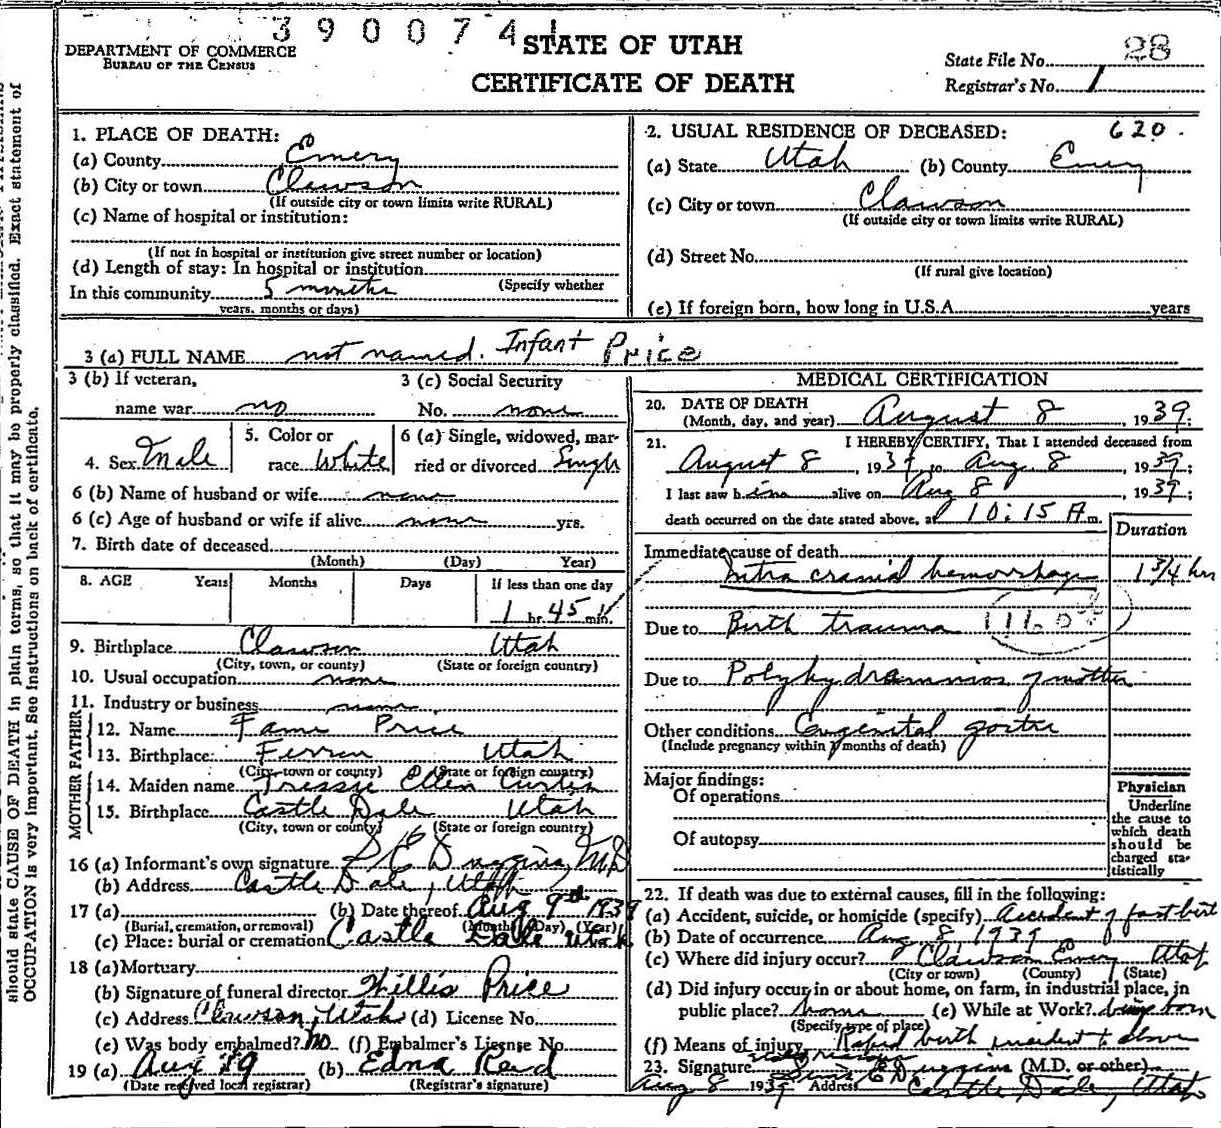 3 9 0 0 7 4 1
DEPARTMENT OF COMMERCE
BUREAU OF THE CENSUS
STATE OF UTAH
CERTIFICATE OF DEATH
State File No. 28
Registrar's No. 1
should state CAUSE OF DEATH in plain terms, so that it may be properly classified. Exact statement of
OCCUPATION is very important. See instructions on back of certificate.
1. PLACE OF DEATH:
(a) County Emery
(b) City or town Clawson
(If outside city or town limits write RURAL)
(c) Name of hospital or institution:
(If not in hospital or institution give street number or location)
(d) Length of stay: In hospital or institution
(Specify whether
In this community 5 months
years, months or days)
2. USUAL RESIDENCE OF DECEASED: 620.
(a) State Utah (b) County Emery
(c) City or town Clawson
(If outside city or town limits write RURAL)
(d) Street No.
(If rural give location)
(e) If foreign born, how long in U.S.A. years
3 (a) FULL NAME not named. Infant Price
3 (b) If veteran, 3 (c) Social Security
name war no No. none
4. Sex Male 5. Color or race White 6 (a) Single, widowed, married or divorced Single
6 (b) Name of husband or wife none
6 (c) Age of husband or wife if alive none yrs.
7. Birth date of deceased
(Month) (Day) Year)
8. AGE Years Months Days If less than one day
1 hr. 45 min.
9. Birthplace Clawson Utah
(City, town, or county) (State or foreign country)
10. Usual occupation none
11. Industry or business none
FATHER
12. Name Fame Price
13. Birthplace: Ferron Utah
(City, town or county) (State or foreign country)
MOTHER
14. Maiden name Tressie Ellen Curtis
15. Birthplace Castle Dale Utah
(City, town or county) (State or foreign country)
16 (a) Informant's own signature S E Duggins, MD
(b) Address Castle Dale, Utah
17 (a) (b) Date thereof Aug 9th 1939
(Burial, cremation, or removal) (Month) (Day) (Year)
(c) Place: burial or cremation Castle Dale Utah
18 (a) Mortuary
(b) Signature of funeral director Willis Price
(c) Address Clawson, Utah (d) License No.
(e) Was body embalmed? No (f) Embalmer's License No.
19 (a) Aug 39 (b) Edna Reid
(Date received local registrar) (Registrar's signature)
MEDICAL CERTIFICATION
20. DATE OF DEATH
(Month, day, and year) August 8, 1939.
21. I HEREBY CERTIFY, That I attended deceased from
August 8, 1939, to Aug. 8, 1939;
I last saw him alive on Aug 8, 1939;
death occurred on the date stated above, at 10:15 A m.
Duration
Immediate cause of death
Intra cranial hemorrhage 1 3/4 hrs
Due to Birth trauma 116 0
Due to Polyhydramnios of mother
Other conditions Congenital goitre
(Include pregnancy within months of death)
Major findings:
Of operations
Of autopsy
Physician
Underline
the cause to
which death
should be
charged sta-
tistically
22. If death was due to external causes, fill in the following:
(a) Accident, suicide, or homicide (specify) Accident of fast birth
(b) Date of occurrence Aug 8 1939
(c) Where did injury occur? Clawson Emery Utah
(City or town) (County) (State)
(d) Did injury occur in or about home, on farm, in industrial place, in
public place? home (e) While at Work? being born
(Specify type of place)
(f) Means of injury Rapid birth incident to above
23. Signature E Duggins (M.D. or other)
Aug 8 1939 Address Castle Dale, Utah